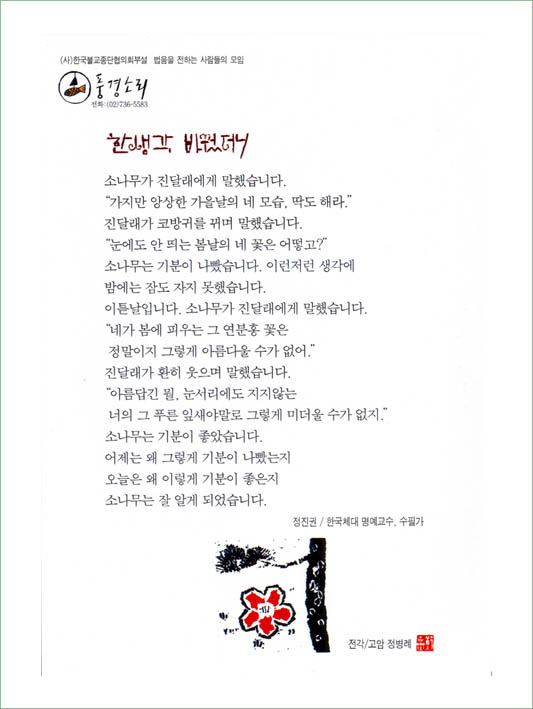 (사)한국불교종단협의회부설 법음을 전하는 사람들의 모임
풍경소리
전화:(02)736-5583
한생각 바꿨더니
소나무가 진달래에게 말했습니다.
“가지만 앙상한 가을날의 네 모습, 딱도 해라.”
진달래가 코방귀를 뀌며 말했습니다.
“눈에도 안 띄는 봄날의 네 꽃은 어떻고?”
소나무는 기분이 나빴습니다. 이런저런 생각에
밤에는 잠도 자지 못했습니다.
이튿날입니다. 소나무가 진달래에게 말했습니다.
“네가 봄에 피우는 그 연분홍 꽃은
정말이지 그렇게 아름다울 수가 없어.”
진달래가 환히 웃으며 말했습니다.
“아름답긴 뭘, 눈서리에도 지지않는
너의 그 푸른 잎새야말로 그렇게 미더울 수가 없지.”
소나무는 기분이 좋았습니다.
어제는 왜 그렇게 기분이 나빴는지
오늘은 왜 이렇게 기분이 좋은지
소나무는 잘 알게 되었습니다.
정진권 / 한국체대 명예교수, 수필가
전각/고암 정병례